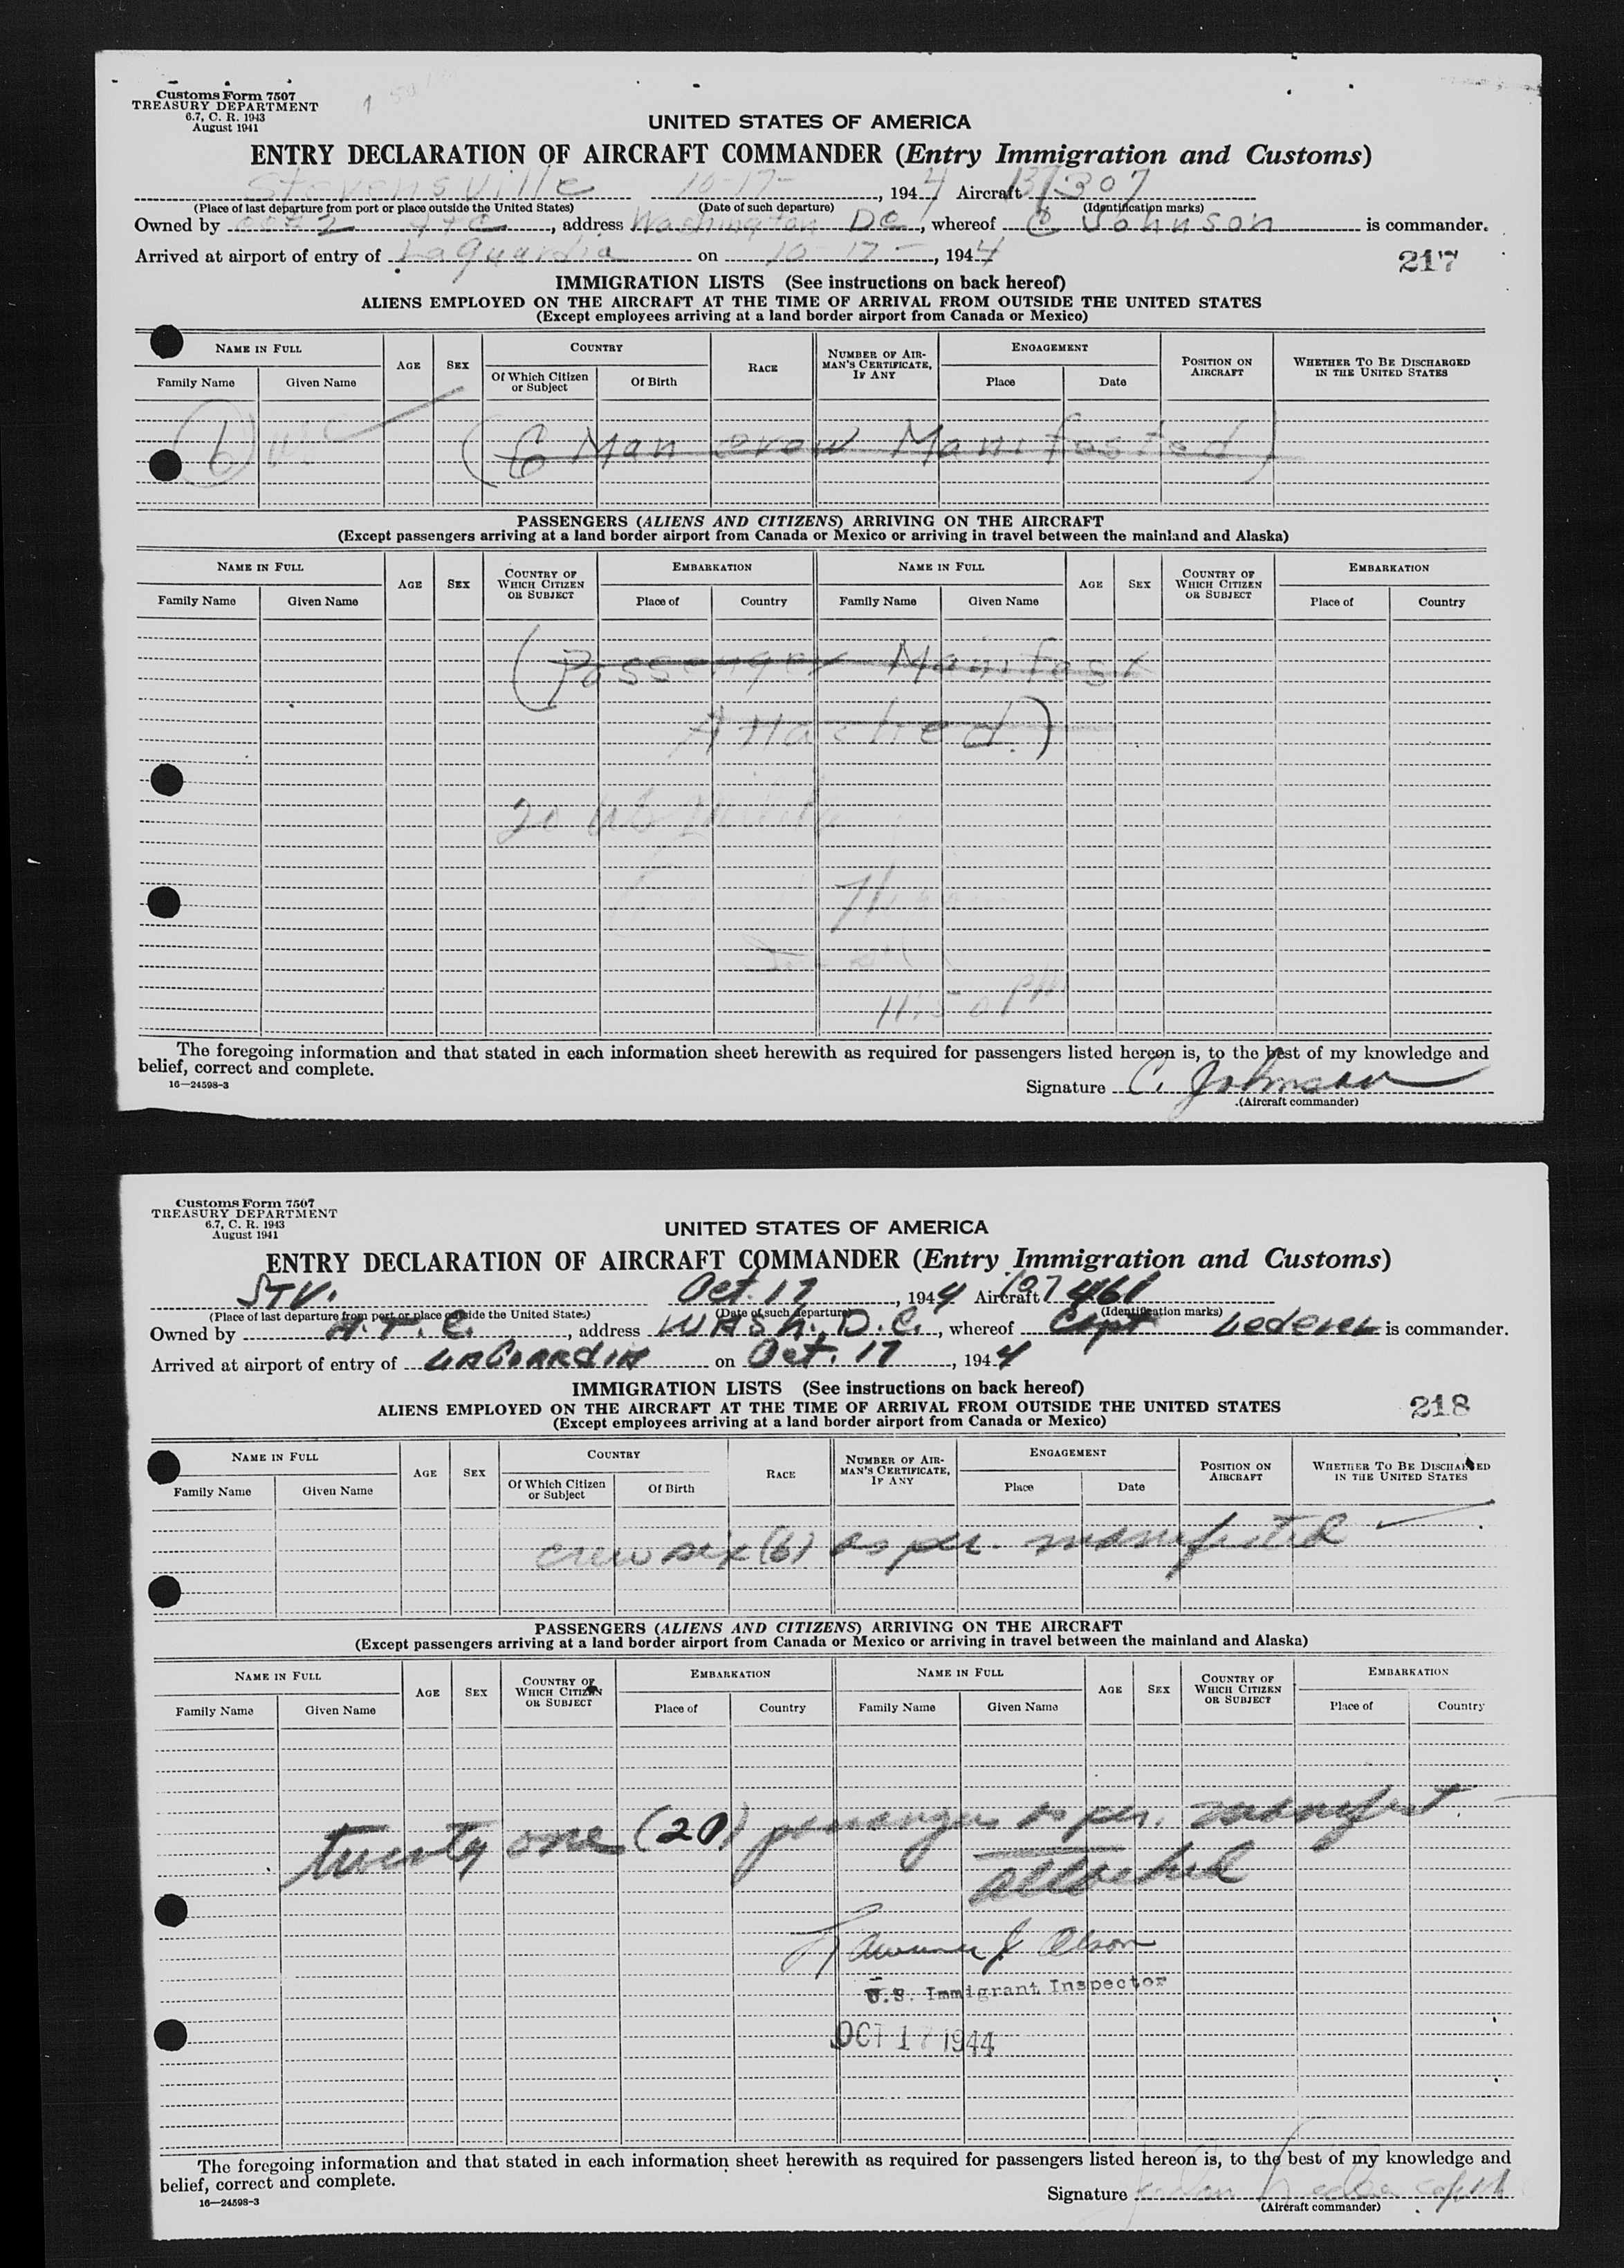 Customs Form 7507
TREASURY DEPARTMENT
6.7, C. R. 1943
August 1941
UNITED STATES OF AMERICA
ENTRY DECLARATION OF AIRCRAFT COMMANDER (Entry Immigration and Customs)
Stevensville 10-17-, 1944 Aircraft 37307
(Place of last departure from port or place outside the United States) (Date of such departure) (Identification marks)
Owned by ATC, address Washington DC, whereof C Johnson is commander.
Arrived at airport of entry of LaGuardia on 10-17-, 1944
217
IMMIGRATION LISTS (See instructions on back hereof)
ALIENS EMPLOYED ON THE AIRCRAFT AT THE TIME OF ARRIVAL FROM OUTSIDE THE UNITED STATES
(Except employees arriving at a land border airport from Canada or Mexico)
NAME IN FULL AGE SEX COUNTRY RACE NUMBER OF AIRMAN'S CERTIFICATE, IF ANY ENGAGEMENT POSITION ON AIRCRAFT WHETHER TO BE DISCHARGED IN THE UNITED STATES
Family Name Given Name Of Which Citizen or Subject Of Birth Place Date
(6)
(6 Man crew Manifested)
PASSENGERS (ALIENS AND CITIZENS) ARRIVING ON THE AIRCRAFT
(Except passengers arriving at a land border airport from Canada or Mexico or arriving in travel between the mainland and Alaska)
NAME IN FULL AGE SEX COUNTRY OF WHICH CITIZEN OR SUBJECT EMBARKATION NAME IN FULL AGE SEX COUNTRY OF WHICH CITIZEN OR SUBJECT EMBARKATION
Family Name Given Name Place of Country Family Name Given Name Place of Country
(Passenger Manifast
Attached.)
20 US
11:50 PM
The foregoing information and that stated in each information sheet herewith as required for passengers listed hereon is, to the best of my knowledge and
belief, correct and complete.
16—24598-3
Signature C. Johnson
(Aircraft commander)
Customs Form 7507
TREASURY DEPARTMENT
6.7, C. R. 1943
August 1941
UNITED STATES OF AMERICA
ENTRY DECLARATION OF AIRCRAFT COMMANDER (Entry Immigration and Customs)
STV. Oct. 17, 1944 Aircraft 107461
(Place of last departure from port or place outside the United States) (Date of such departure) (Identification marks)
Owned by A.T.C., address WASh. D.C., whereof Capt Lederer is commander.
Arrived at airport of entry of LAGuARdIA on Oct. 17, 1944
IMMIGRATION LISTS (See instructions on back hereof)
ALIENS EMPLOYED ON THE AIRCRAFT AT THE TIME OF ARRIVAL FROM OUTSIDE THE UNITED STATES
218
(Except employees arriving at a land border airport from Canada or Mexico)
NAME IN FULL AGE SEX COUNTRY RACE NUMBER OF AIRMAN'S CERTIFICATE, IF ANY ENGAGEMENT POSITION ON AIRCRAFT WHETHER TO BE DISCHARGED IN THE UNITED STATES
Family Name Given Name Of Which Citizen or Subject Of Birth Place Date
crew six (6) as per. manifested
PASSENGERS (ALIENS AND CITIZENS) ARRIVING ON THE AIRCRAFT
(Except passengers arriving at a land border airport from Canada or Mexico or arriving in travel between the mainland and Alaska)
NAME IN FULL AGE SEX COUNTRY OF WHICH CITIZEN OR SUBJECT EMBARKATION NAME IN FULL AGE SEX COUNTRY OF WHICH CITIZEN OR SUBJECT EMBARKATION
Family Name Given Name Place of Country Family Name Given Name Place of Country
twenty one (20) passengers as per. manifest
attached
Lawrence J Olson
U.S. Immigrant Inspector
OCT 17 1944
The foregoing information and that stated in each information sheet herewith as required for passengers listed hereon is, to the best of my knowledge and
belief, correct and complete.
16—24598-3
Signature
(Aircraft commander)